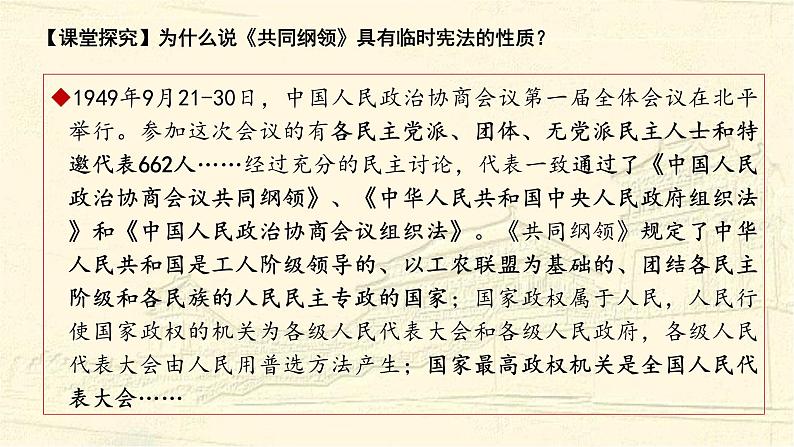 【课堂探究】为什么说《共同纲领》具有临时宪法的性质？
◆1949年9月21-30日，中国人民政治协商会议第一届全体会议在北平
举行。参加这次会议的有各民主党派、团体、无党派民主人士和特
邀代表662人……经过充分的民主讨论，代表一致通过了《中国人民
政治协商会议共同纲领》、《中华人民共和国中央人民政府组织法
》和《中国人民政治协商会议组织法》。《共同纲领》规定了中华
人民共和国是工人阶级领导的、以工农联盟为基础的、团结各民主
阶级和各民族的人民民主专政的国家；国家政权属于人民，人民行
使国家政权的机关为各级人民代表大会和各级人民政府，各级人民
代表大会由人民用普选方法产生；国家最高政权机关是全国人民代
表大会……